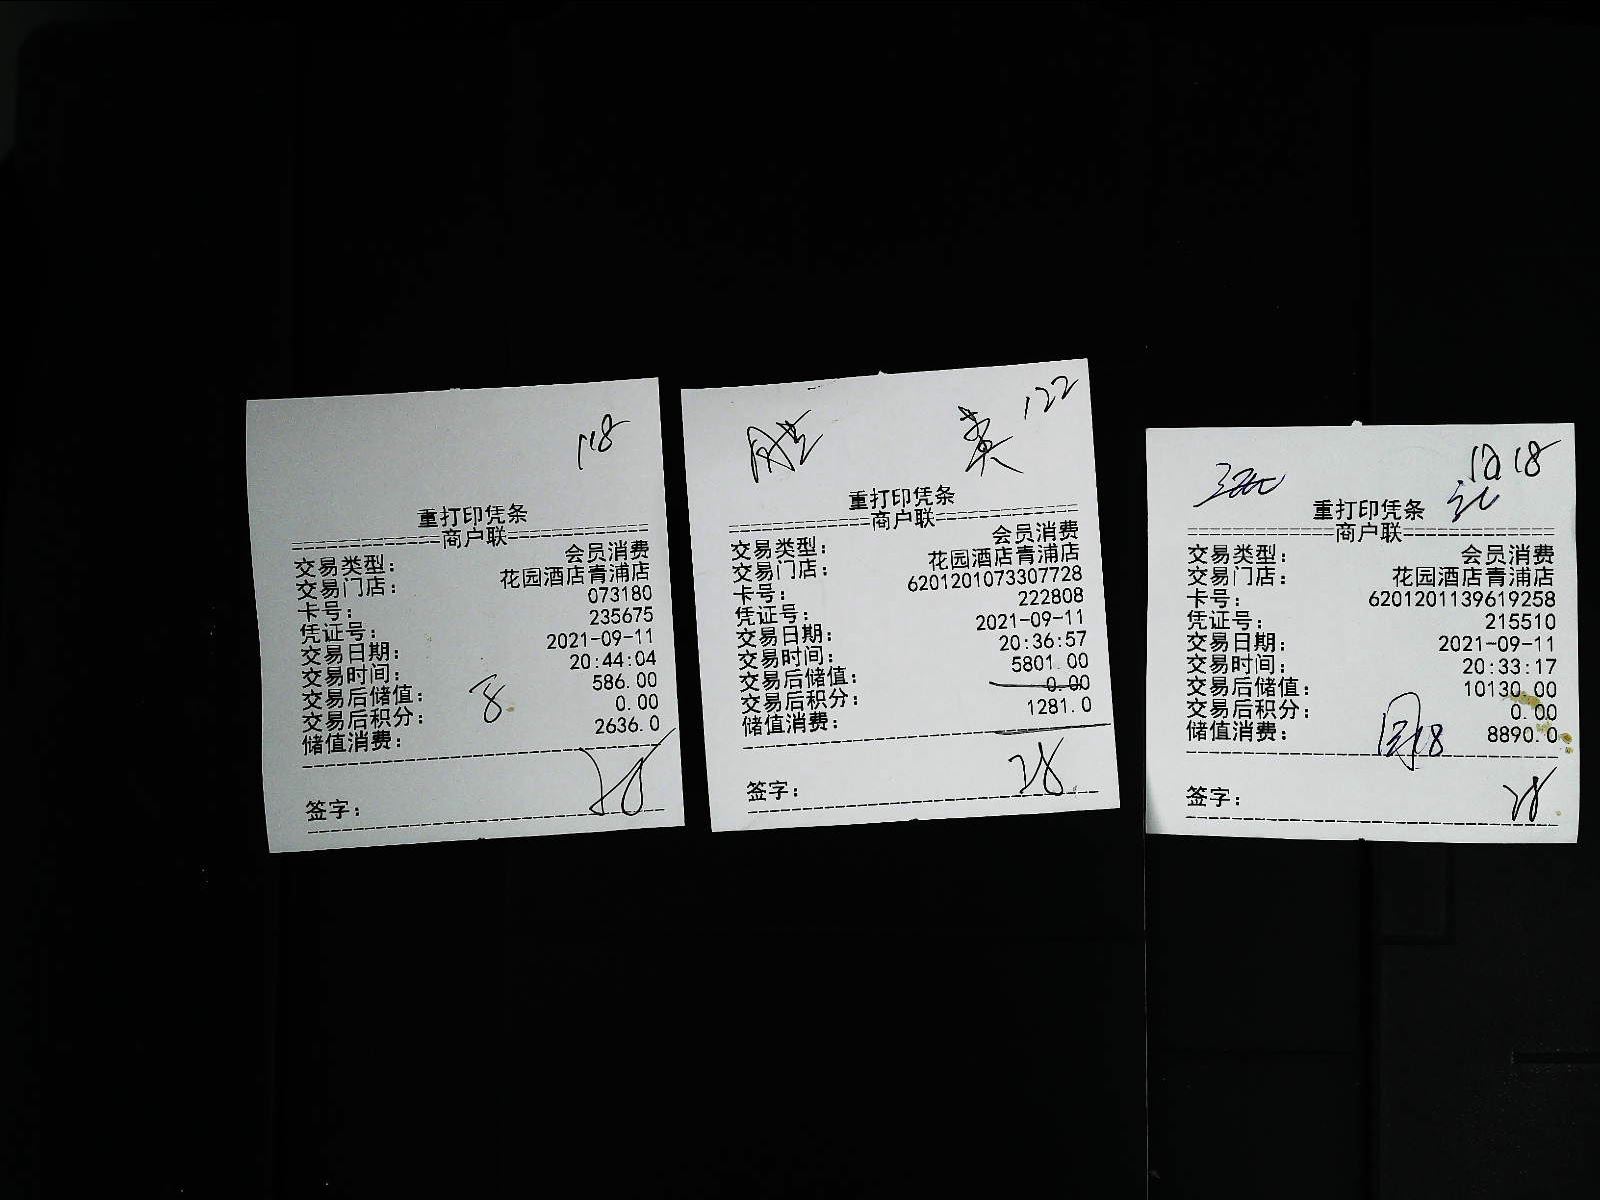 118
重打印凭条
商户联
交易类型： 会员消费
交易门店： 花园酒店青浦店
卡号： 073180
凭证号： 235675
交易日期： 2021-09-11
交易时间： 20:44:04
交易后储值： 586.00
交易后积分： 0.00
储值消费： 2636.0
签字：
122
重打印凭条
商户联
交易类型： 会员消费
交易门店： 花园酒店青浦店
卡号： 6201201073307728
凭证号： 222808
交易日期： 2021-09-11
交易时间： 20:36:57
交易后储值： 5801.00
交易后积分： 0.00
储值消费： 1281.0
签字：
重打印凭条
商户联
交易类型： 会员消费
交易门店： 花园酒店青浦店
卡号： 6201201139619258
凭证号： 215510
交易日期： 2021-09-11
交易时间： 20:33:17
交易后储值： 10130.00
交易后积分： 0.00
储值消费： 8890.0
签字：